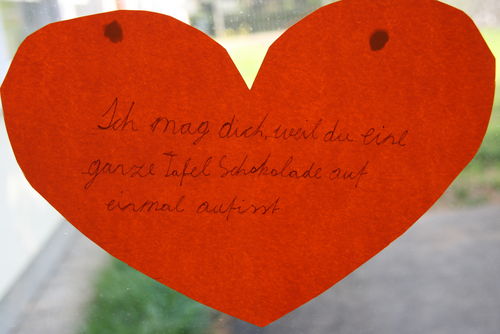 Ich mag dich, weil du eine
ganze Tafel Schokolade auf
einmal aufisst